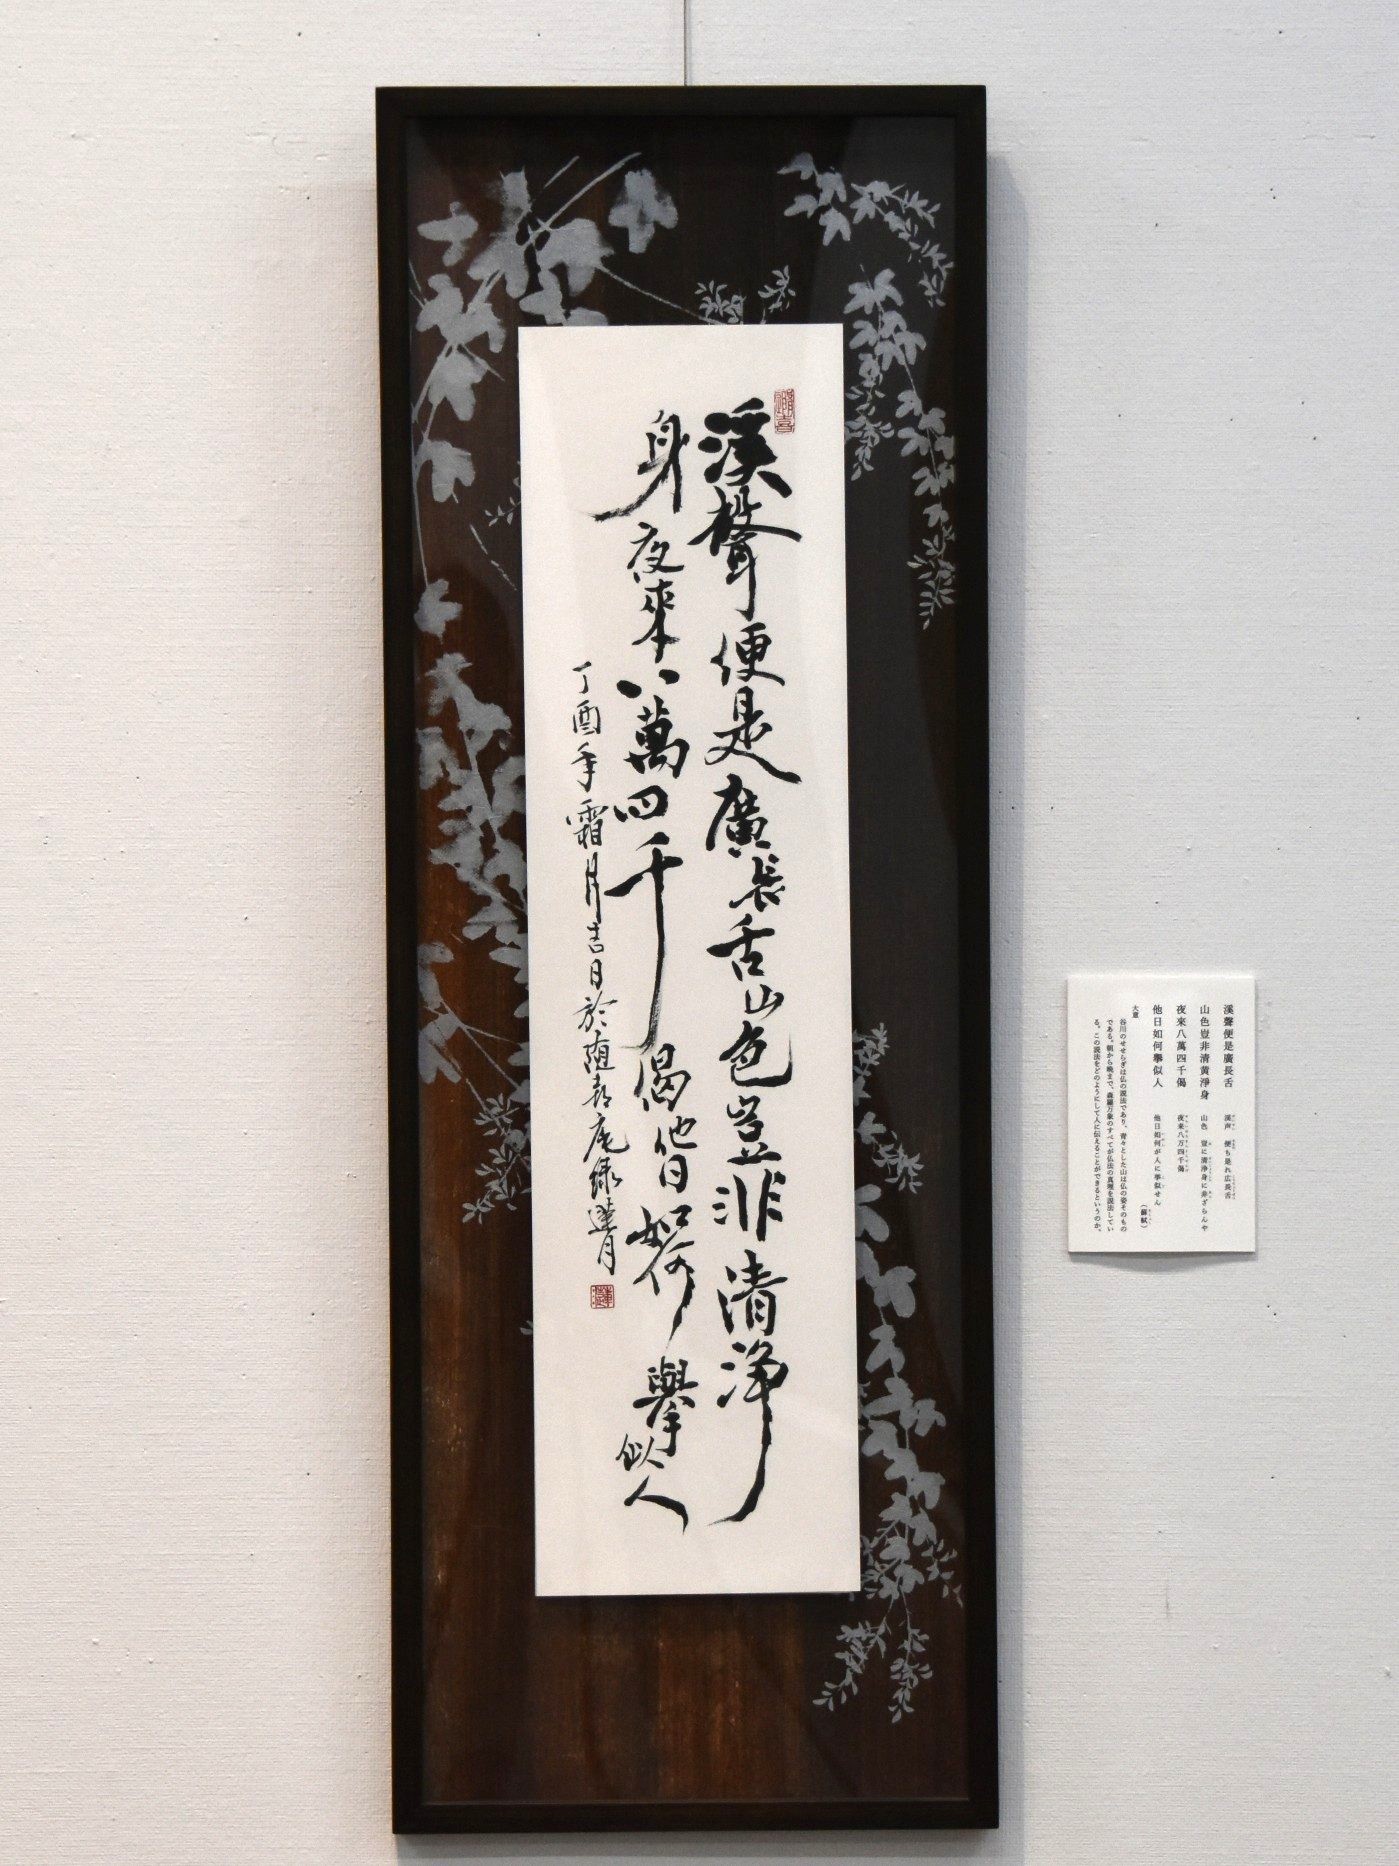 溪聲便是廣長舌山色豈非清浄
身夜来八萬四千偈他日如何擧似人
丁酉年霜月吉日於随
溪聲便是廣長舌 溪声 便ち是れ広長舌
山色豈非清黄淨身 山色 豈に清浄身に非ざらんや
夜来八萬四千偈 夜来八万四千偈
他日如何擧似人 他日如何が人に挙似せん
（蘇軾）
大意
谷川のせせらぎは仏の説法であり、青々とした山は仏の姿そのもの
である。朝から晩まで、森羅万象のすべてが仏法の真理を説法してい
る。この説法をどのようにして人に伝えることができるというのか。